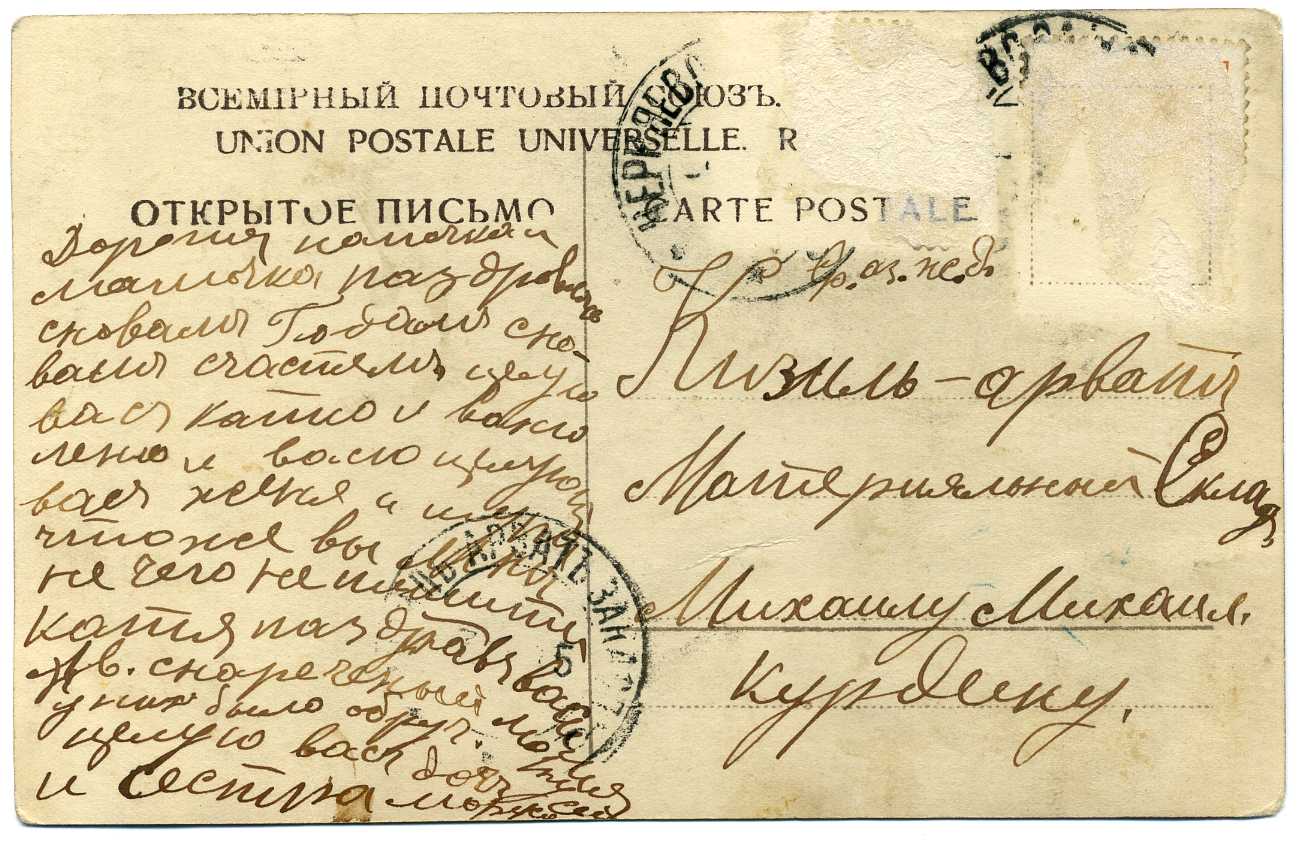 ВСЕМІРНЫЙ ПОЧТОВЫЙ СОЮЗЪ.
UNION POSTALE UNIVERSELLE. R
ОТКРЫТОЕ ПИСЬМО
CARTE POSTALE
Дорогия папочка и
мамочка паздровляю
сновамъ Годомъ сно-
вымъ счастемъ целую
васъ катю и ваню
леню и валю целуют
васъ женя и
чтоже вы мне
не чего непишите
катя паздравъ васъ
снареченым
у них было обруч.
целую васъ дочь
и Сестра
Кизилъ-арватъ
Материяльный Складъ,
Михаилу Михаил.
Курдюку.
МЕРКЛЯЕВО
АРВАТЪ ЗАК
5